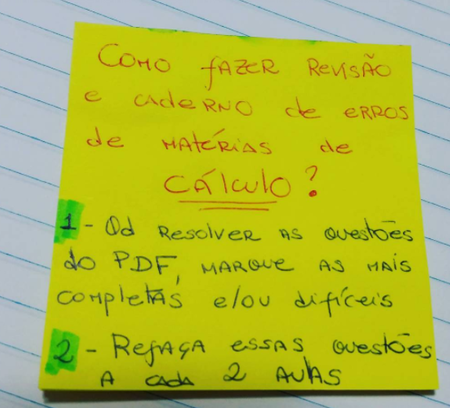 COMO fAZER REVISÃO
e CADERNO de ERROS
de MATÉRIAS de
CÁLCULO?
1 - Od RESOLVER AS QUESTÕES
do PDF, MARQUE AS MAIS
COMPLETAS e/ou difíceis
2 - REFAÇA ESSAS QUESTÕES
A CADA 2 AULAS